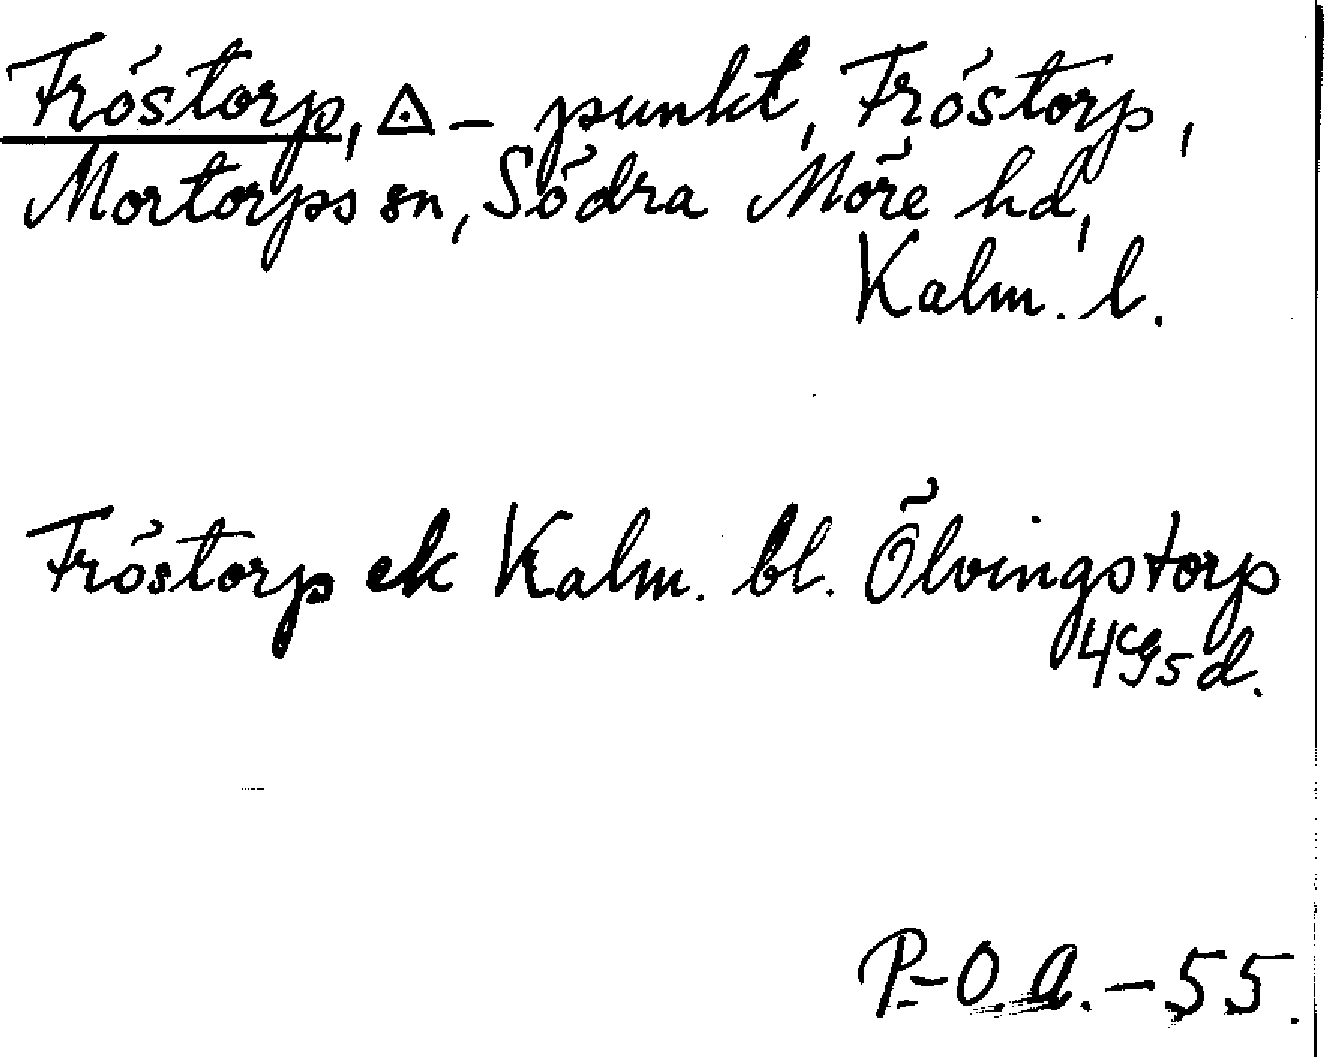 Fröstorp, △-punkt, Fröstorp,
Mortorps sn, Södra Möre hd,
Kalm. l.
Fröstorp ek Kalm. bl. Ölvingstorp
4G5d.
P-O.A.-55.